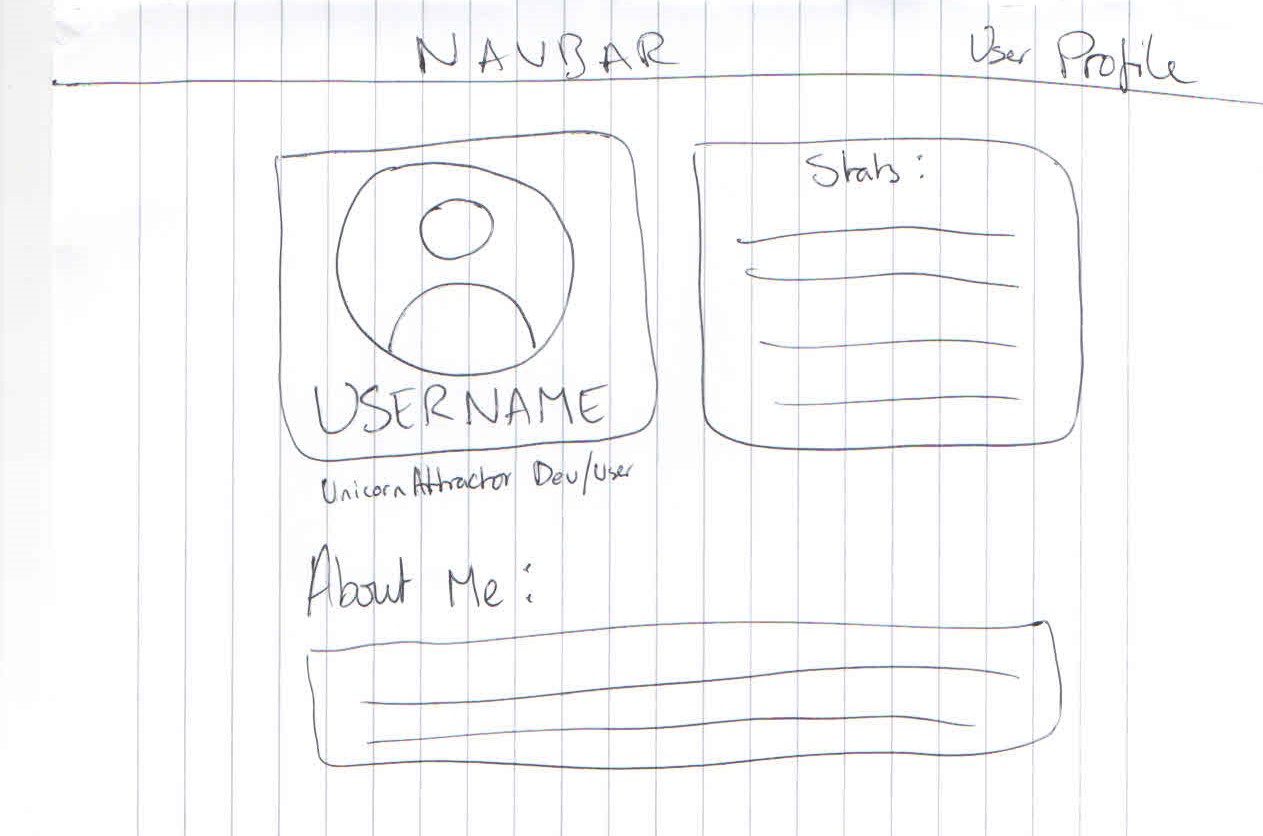 NAVBAR User Profile
Stats:
USERNAME
UnicornAttractor Dev/User
About Me: